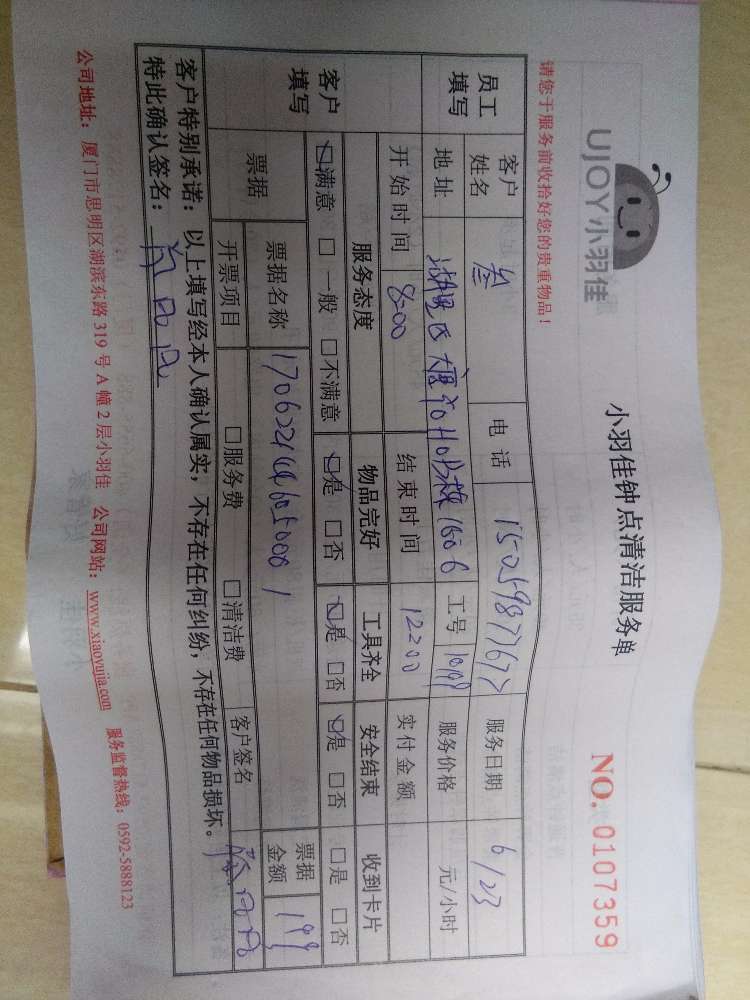 UJOY小羽佳
小羽佳钟点清洁服务单
NO. 0107359
请您于服务前收拾好您的贵重物品！
员工填写 客户姓名 电话 15059877677 服务日期 6/23
地址 1606 工号 服务价格 元/小时
开始时间 8:00 结束时间 12:00 实付金额
客户填写 服务态度 物品完好 工具齐全 安全结束 收到卡片
☑满意 □一般 □不满意 ☑是 □否 ☑是 □否 ☑是 □否 □是 □否
票据 票据名称 票据金额 199
开票项目 □服务费 □清洁费 客户签名
客户特别承诺：以上填写经本人确认属实，不存在任何纠纷，不存在任何物品损坏。
特此确认签名：
公司地址：厦门市思明区湖滨东路319号A幢2层小羽佳 公司网站：www.xiaoyujia.com 服务监督热线：0592-5888123